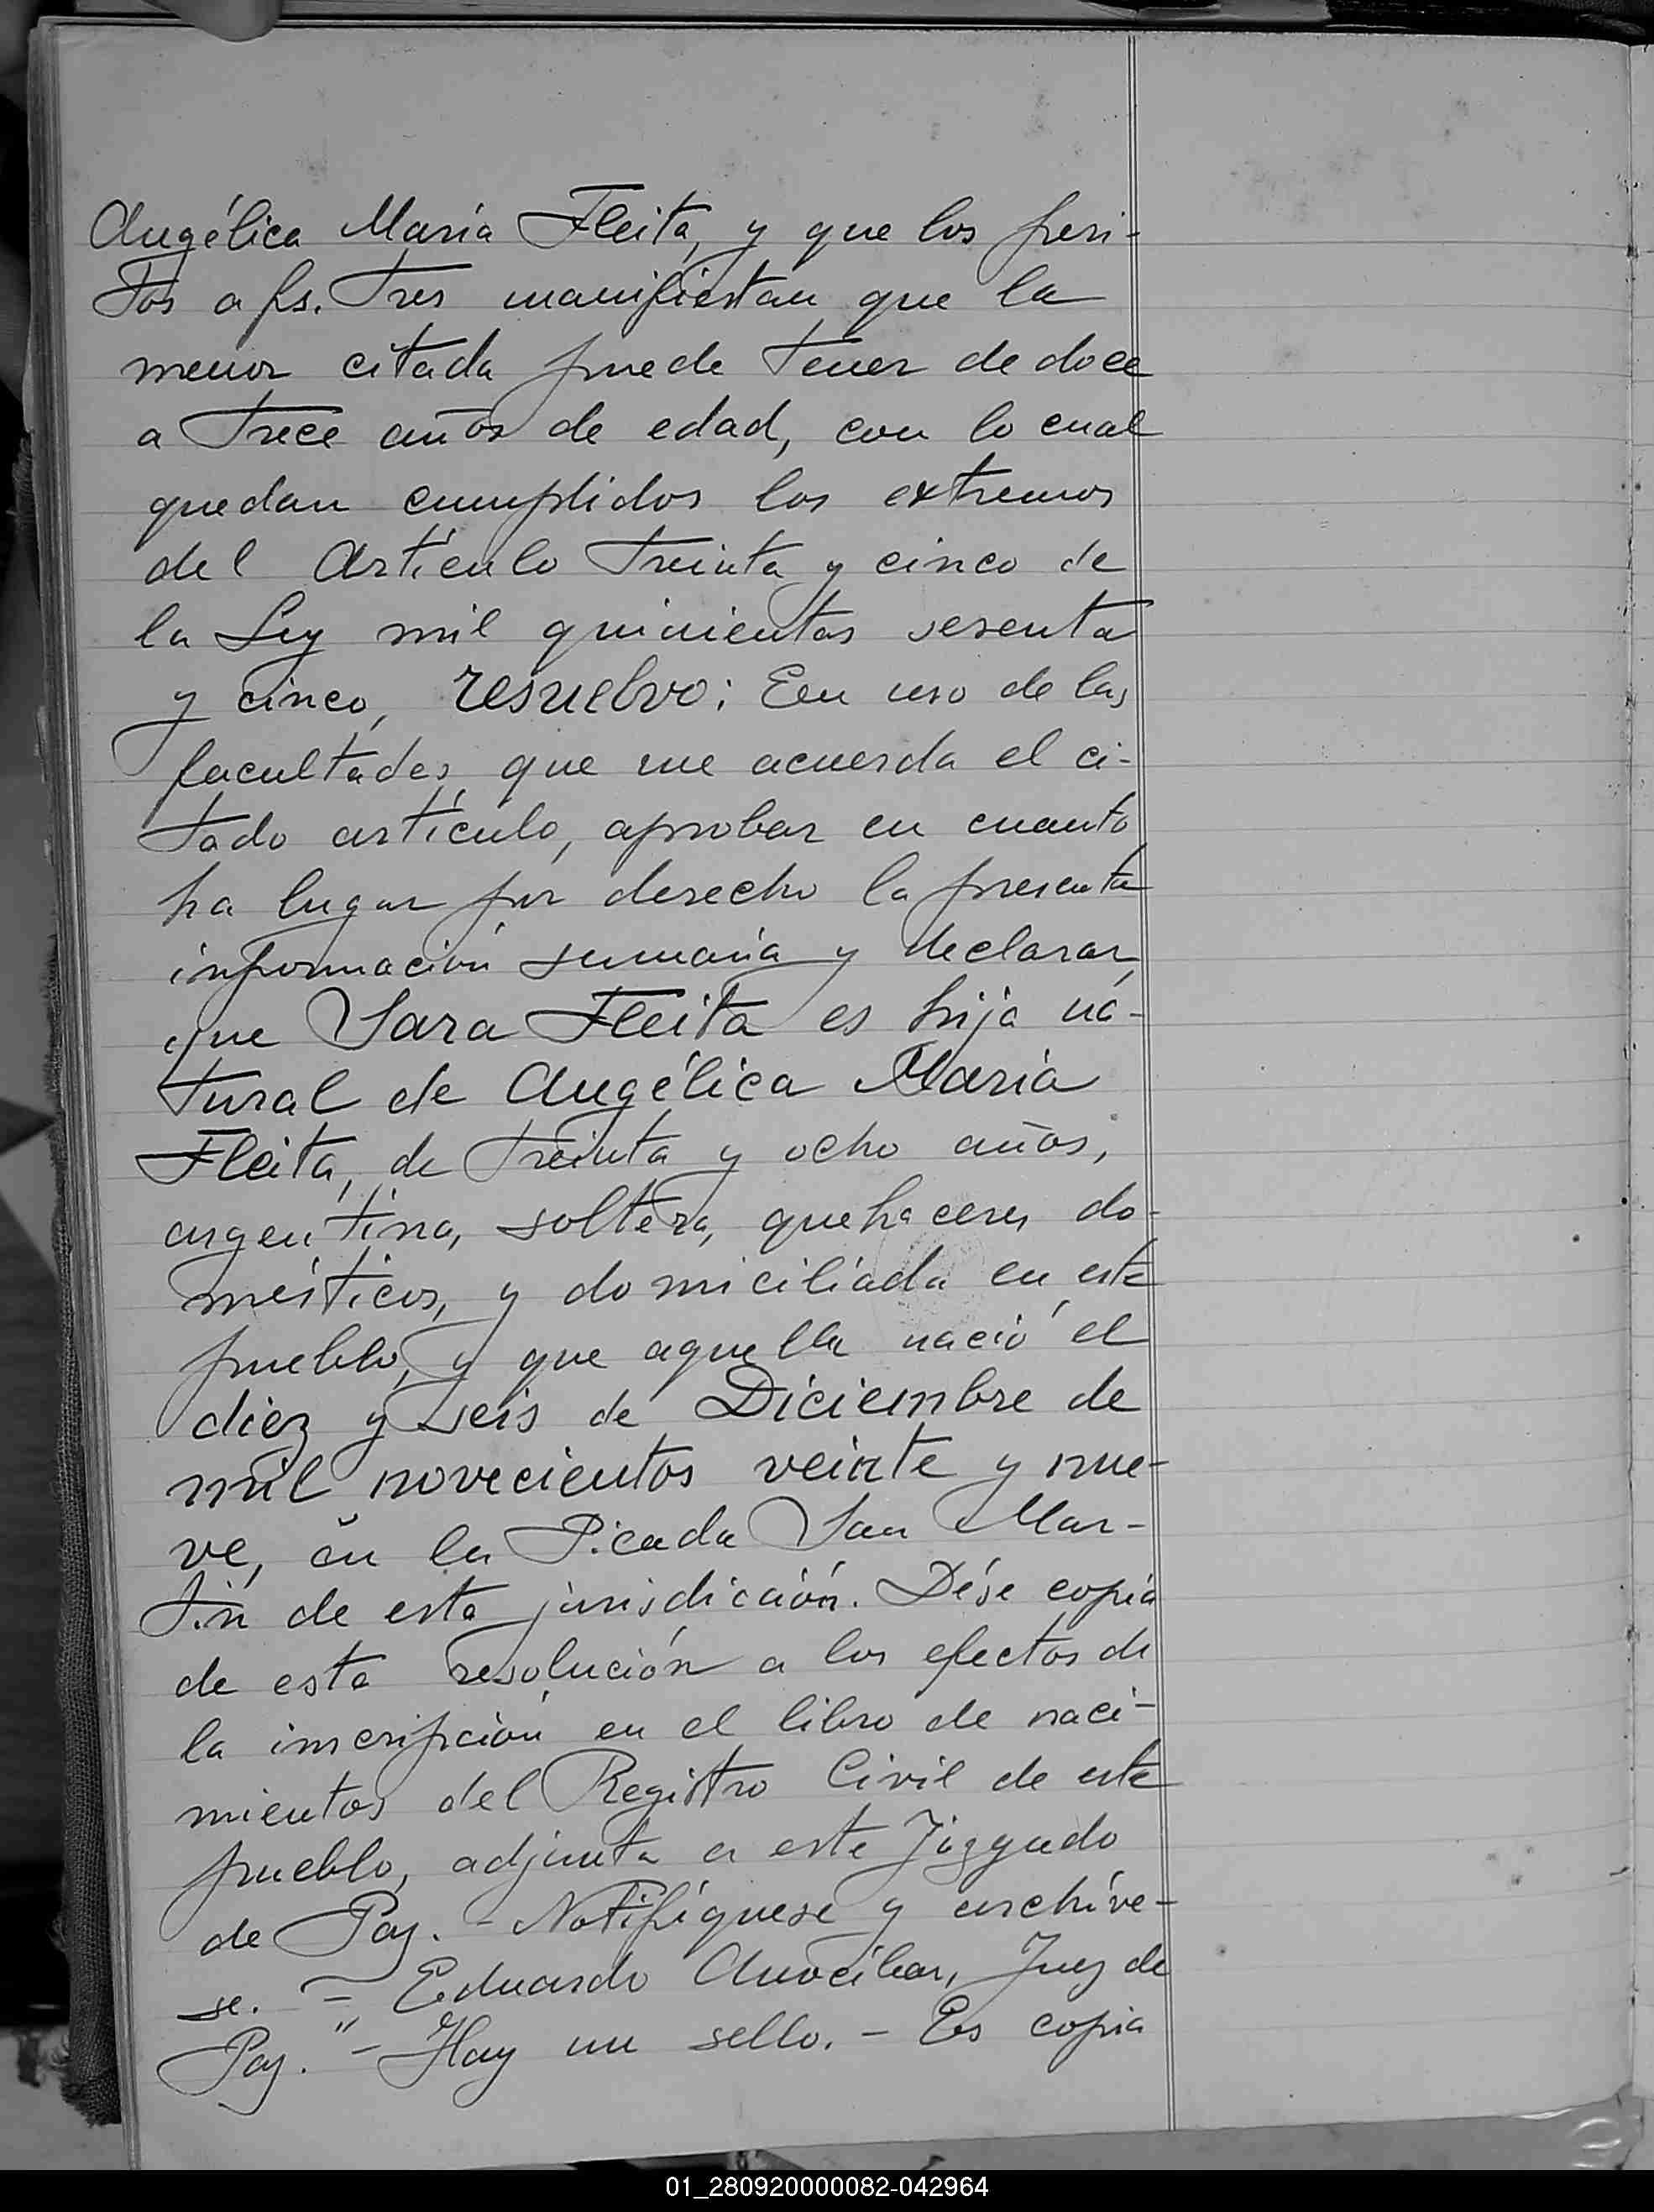 Angélica María Fleita, y que los peri-
tos a fs. tres manifiestan que la
menor citada puede tener de doce
a trece años de edad, con lo cual
quedan cumplidos los extremos
del Artículo treinta y cinco de
la Ley mil quinientos sesenta
y cinco, resuelvo: En uso de las
facultades que me acuerda el ci-
tado artículo, aprobar en cuanto
ha lugar por derecho la presente
información sumaria y declarar
que Sara Fleita es hija na-
tural de Angélica María
Fleita, de treinta y ocho años,
argentina, soltera, quehaceres do-
mésticos, y domiciliada en este
pueblo, y que aquella nació el
diez y seis de Diciembre de
mil novecientos veinte y nue-
ve, en la Picada San Mar-
tín de esta jurisdicción. Dése copia
de esta resolución a los efectos de
la inscripción en el libro de naci-
mientos del Registro Civil de este
pueblo, adjunta a este Juzgado
de Paz. - Notifíquese y archíve-
se. - Eduardo Juez de
Paz." - Hay un sello. - Es copia
01_280920000082-042964